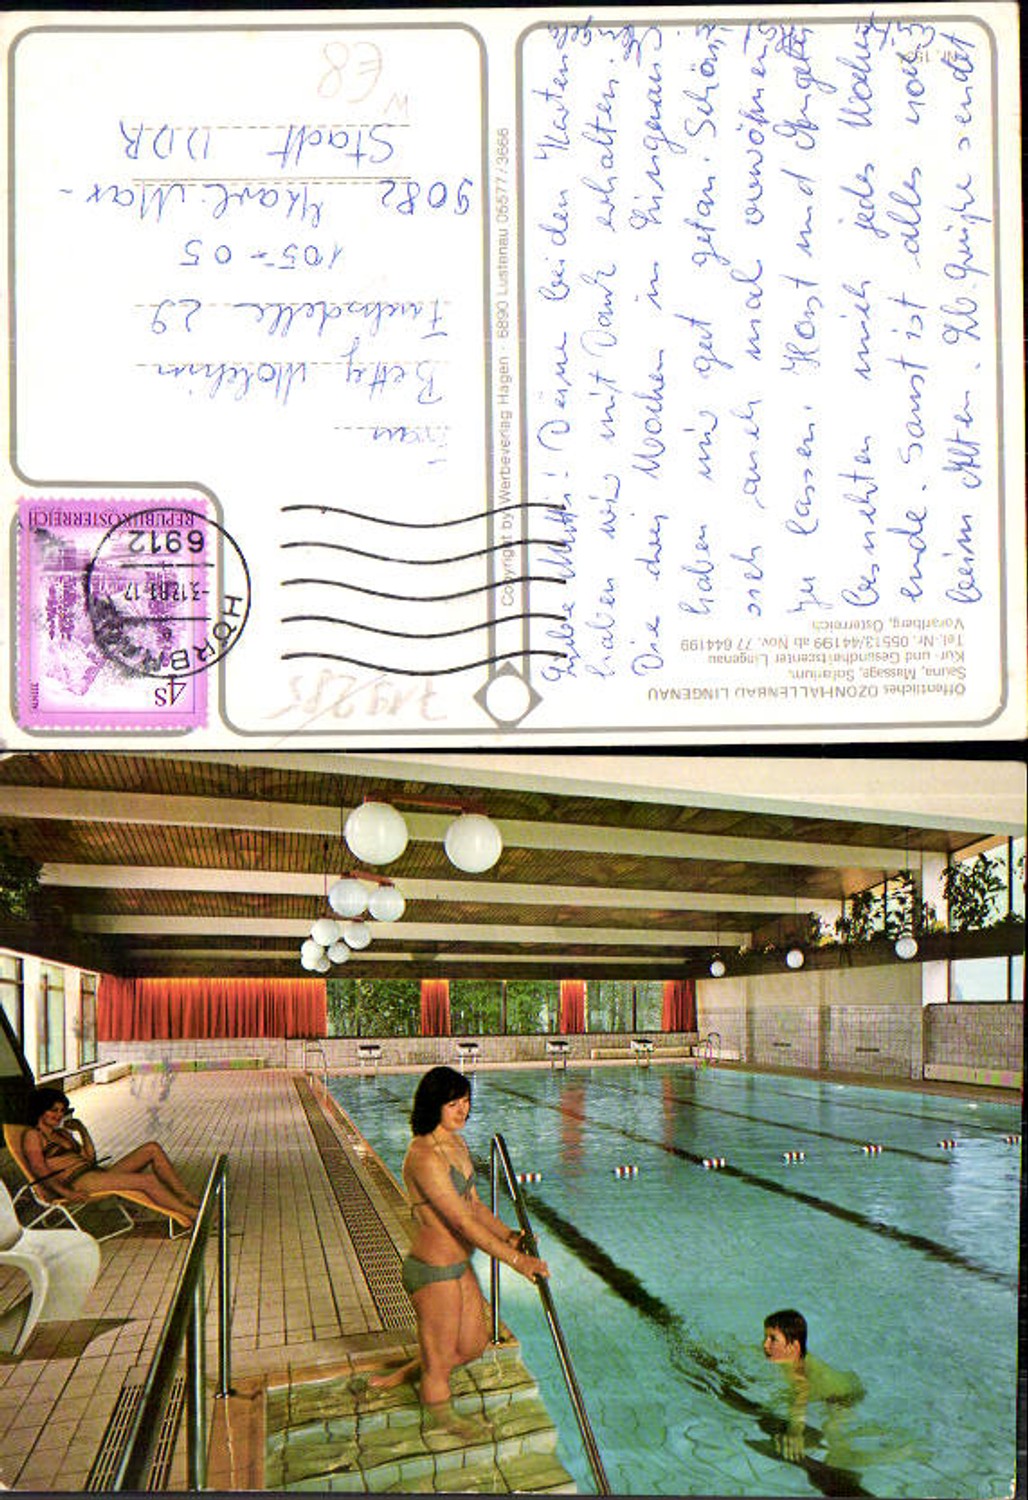 Öffentliches OZONHALLENBAD LINGENAU
Sauna, Massage, Solarium,
Kur- und Gesundheitscenter Lingenau
Tel.-Nr. 05513/44199 ab Nov. 77 644199
Vorarlberg, Österreich
Liebe Mutti! Deine beiden Karten
haben wir mit Dank erhalten.
Die drei Wochen in Lingenau
haben mir gut getan. Schön ist
sich auch mal verwöhnen
zu lassen. Horst und Angela
besuchten mich jedes Wochen
ende. Sonst ist alles noch
beim Alten. Lb. Grüße sendet
Angela
Copyright by Werbeverlag Hagen · 6890 Lustenau 05577/3666
REPUBLIK ÖSTERREICH
4S
6912
-3.12.83-17
HÖRBRANZ
Frau
Betty
29
105-05
9082 Karl-Marx-
Stadt DDR
W
E8